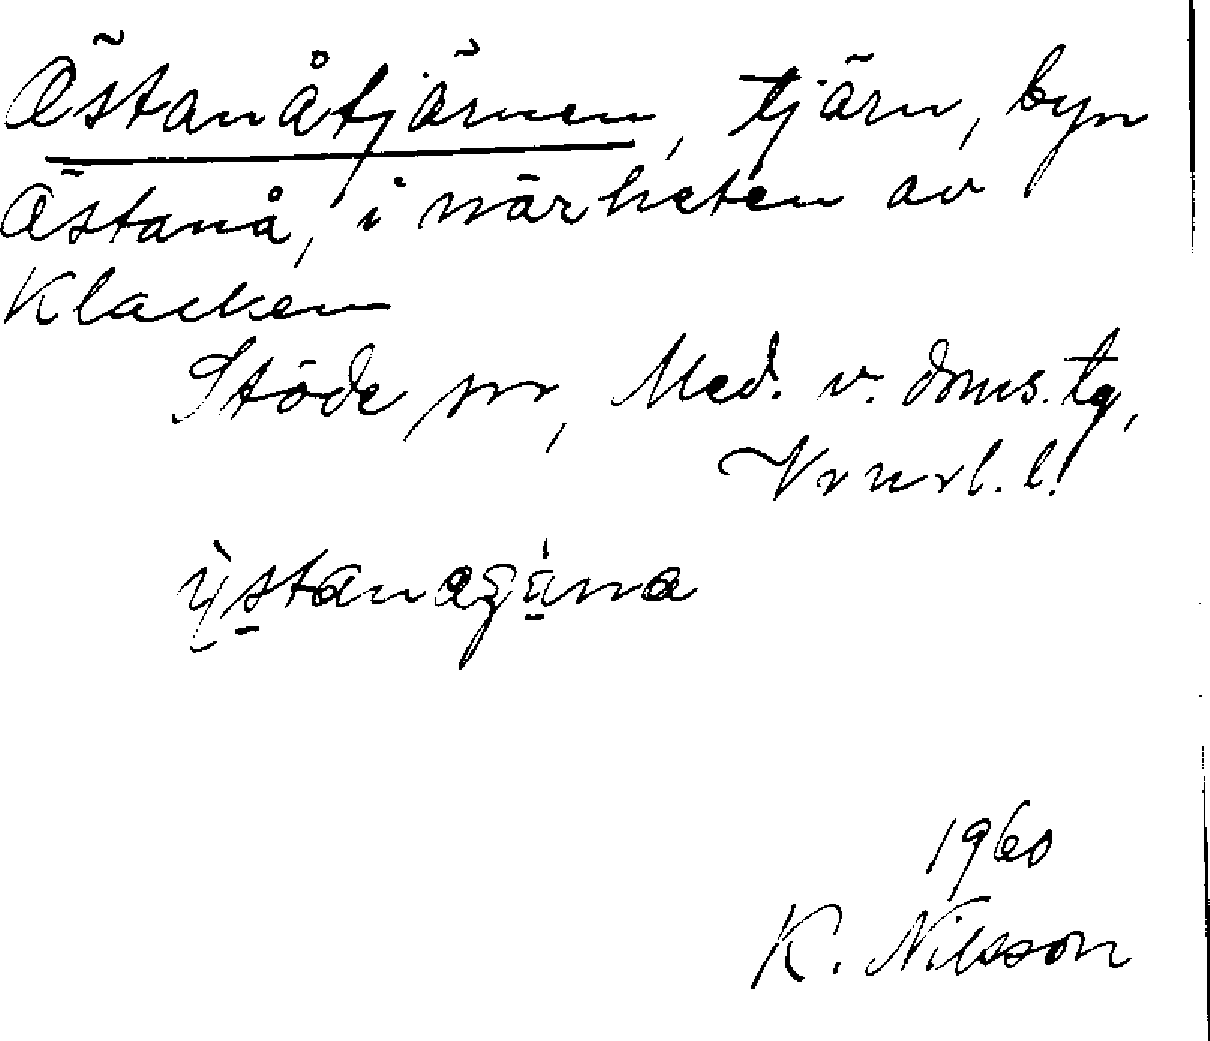 Östanåtjärnen, tjärn, byn
Östanå, i närheten av
Klacken
Stöde sn, Med. v. doms. tg,
Vnorl. l.
1960
K. Nilsson